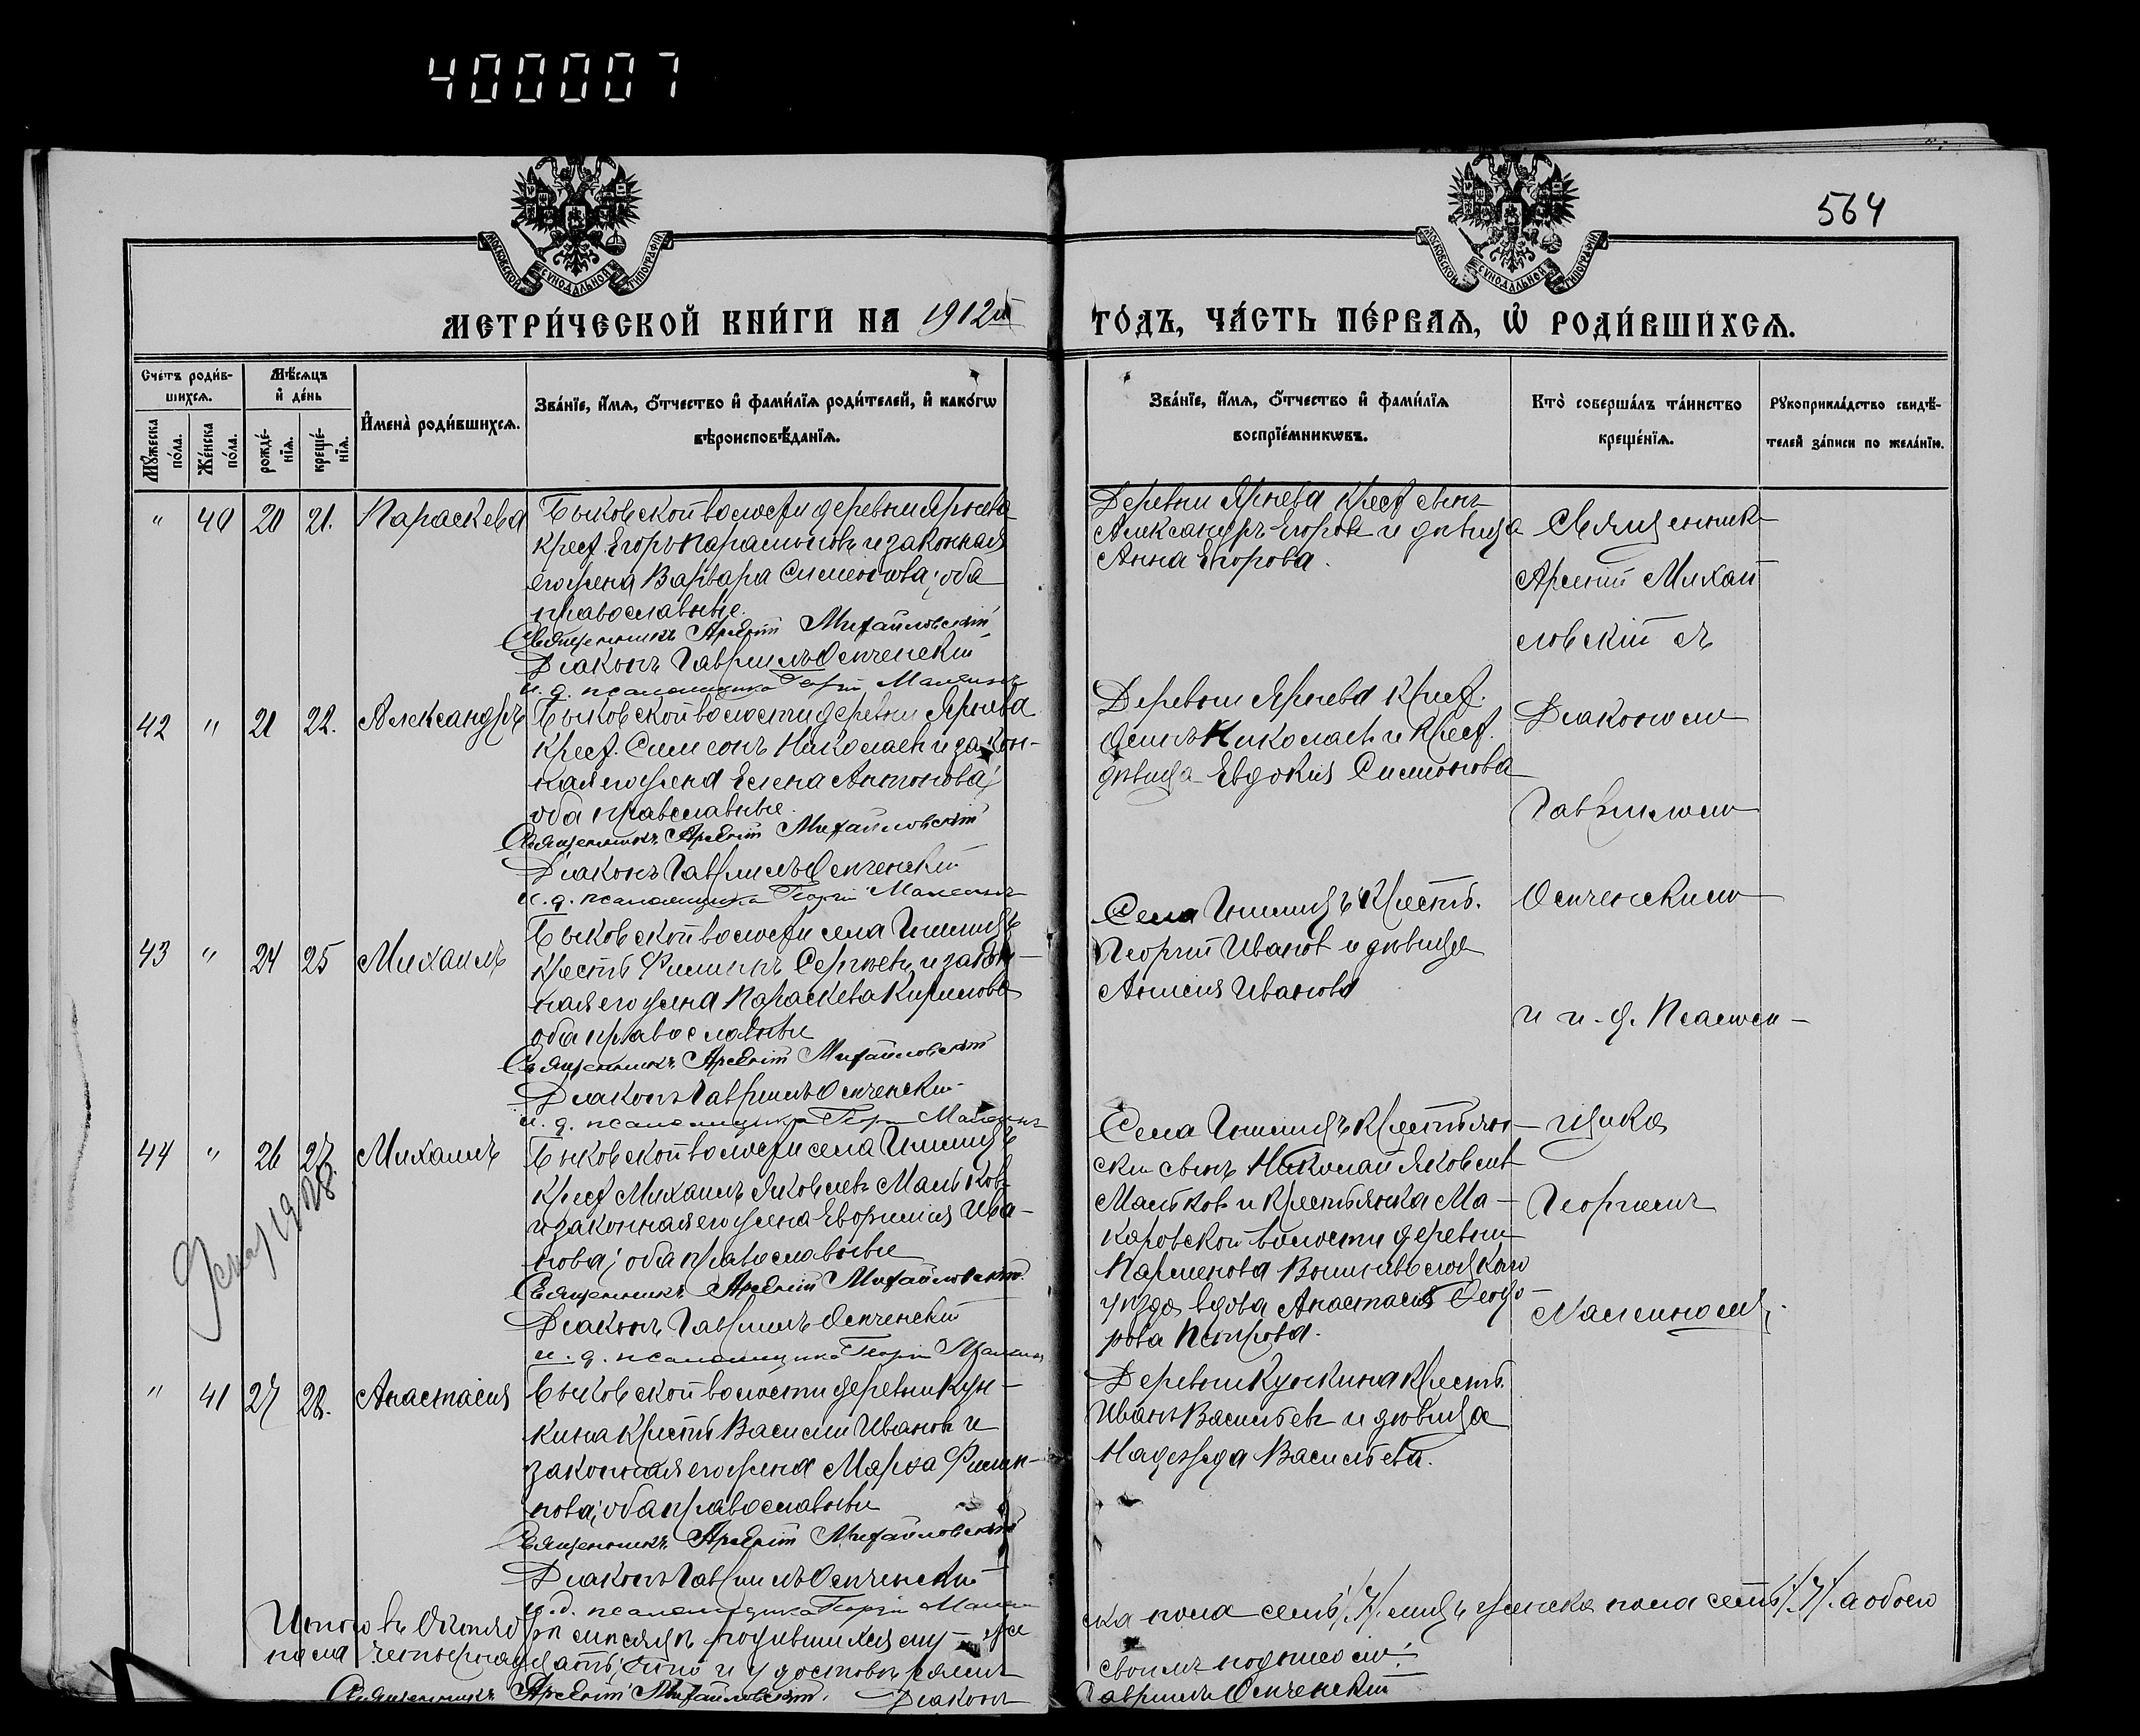 400007
564
МОСКОВСКОЙ СѴНОДАЛЬНОЙ ТИПОГРАФІИ
МОСКОВСКОЙ СѴНОДАЛЬНОЙ ТИПОГРАФІИ
МЕТРИ́ЧЕСКОЙ КНИ́ГИ НА 1912й ГО́ДЪ, ЧА́СТЬ ПЕ́РВАЯ, Ѡ҆ РОДИ́ВШИХСЯ.
Сче́тъ роди́вшихся.
Мꙋ́жеска по́ла.
Же́нска по́ла.
Мѣ́сяцъ и҆ де́нь
рожде́нїя.
креще́нїя.
И҆мена̀ роди́вшихся.
Зва́нїе, и҆́мя, ѻ҆́тчество и҆ фами́лїя роди́телей, и҆ како́гѡ
вѣроисповѣ́данїя.
Зва́нїе, и҆́мя, ѻ҆́тчество и҆ фами́лїя
воспрїе́мникѡвъ.
Кто̀ соверша́лъ та́инство
креще́нїя.
Рꙋкоприкла́дство свидѣ́-
телей за́писи по жела́нїю.
" 40 20 21. Параскева
Быковской волости деревни Ярнева
крест. Егоръ Парамоновъ и законная
его жена Варвара Симеонова; оба
православные.
Священникъ Арсеній Михайловскій
Діаконъ Гавріилъ Осиченскій
и. д. псаломщика Георгій
Деревни Ярнева крест. сынъ
Александръ Егоровъ и дѣвица
Анна Егорова.
Священникъ
Арсеній Михай
ловскій съ
Діакономъ
Гавріиломъ
Осиченскимъ
и и. д. Псаломщика
Георгіемъ
42 " 21 22. Александръ
Быковской волости деревни Ярнева
крест. Симеонъ Николаевъ и закон-
ная его жена Елена Антонова;
оба православные.
Священникъ Арсеній Михайловскій
Діаконъ Гавріилъ Осиченскій
и. д. псаломщика Георгій
Деревни Ярнева крест.
Николаевъ и крест.
дѣвица Евдокія Симеонова
43 " 24 25 Михаилъ
Быковской волости села
крестъ. Филиппъ Сергѣевъ и закон-
ная его жена Параскева Кирилова
оба православные
Священникъ Арсеній Михайловскій
Діаконъ Гавріилъ Осиченскій
и. д. псаломщика Георгій
Села крестъ.
Георгій Ивановъ и дѣвица
Анисія Иванова
44 " 26 27. Михаилъ
Быковской волости села
крест Михаилъ Яковлевъ Мальковъ
и законная его жена Евфимія Ива-
нова; оба православные
Священникъ Арсеній Михайловскій.
Діаконъ Гавріилъ Осиченскій
и. д. псаломщика Георгій
Села крестьян-
скій сынъ Николай Яковлевъ
Мальковъ и крестьянка Ма-
каровской волости деревни
Парменова Вышневолоцкаго
уѣзда вдова Анастасія Ѳеодо-
рова Петрова.
" 41 27 28. Анастасія
Быковской волости деревни Кун-
кина крестъ Василій Ивановъ и
законная его жена Марѳа Филип-
пова; оба православные
Священникъ Арсеній Михайловскій
Діаконъ Гавріилъ Осиченскій
и. д. псаломщика Георгій
Деревни Кункина крестъ.
Иванъ Васильевъ и дѣвица
Надежда Васильева.
Итого въ Октябрѣ мѣсяцѣ родившихся муже
ска пола семь /7/. лицъ женска пола семь /7/. а обоего
пола четырнадцать, что и удостовѣряемъ
своимъ подписомъ:
Священникъ Арсеній Михайловскій. Діаконъ
Гавріилъ Осиченскій